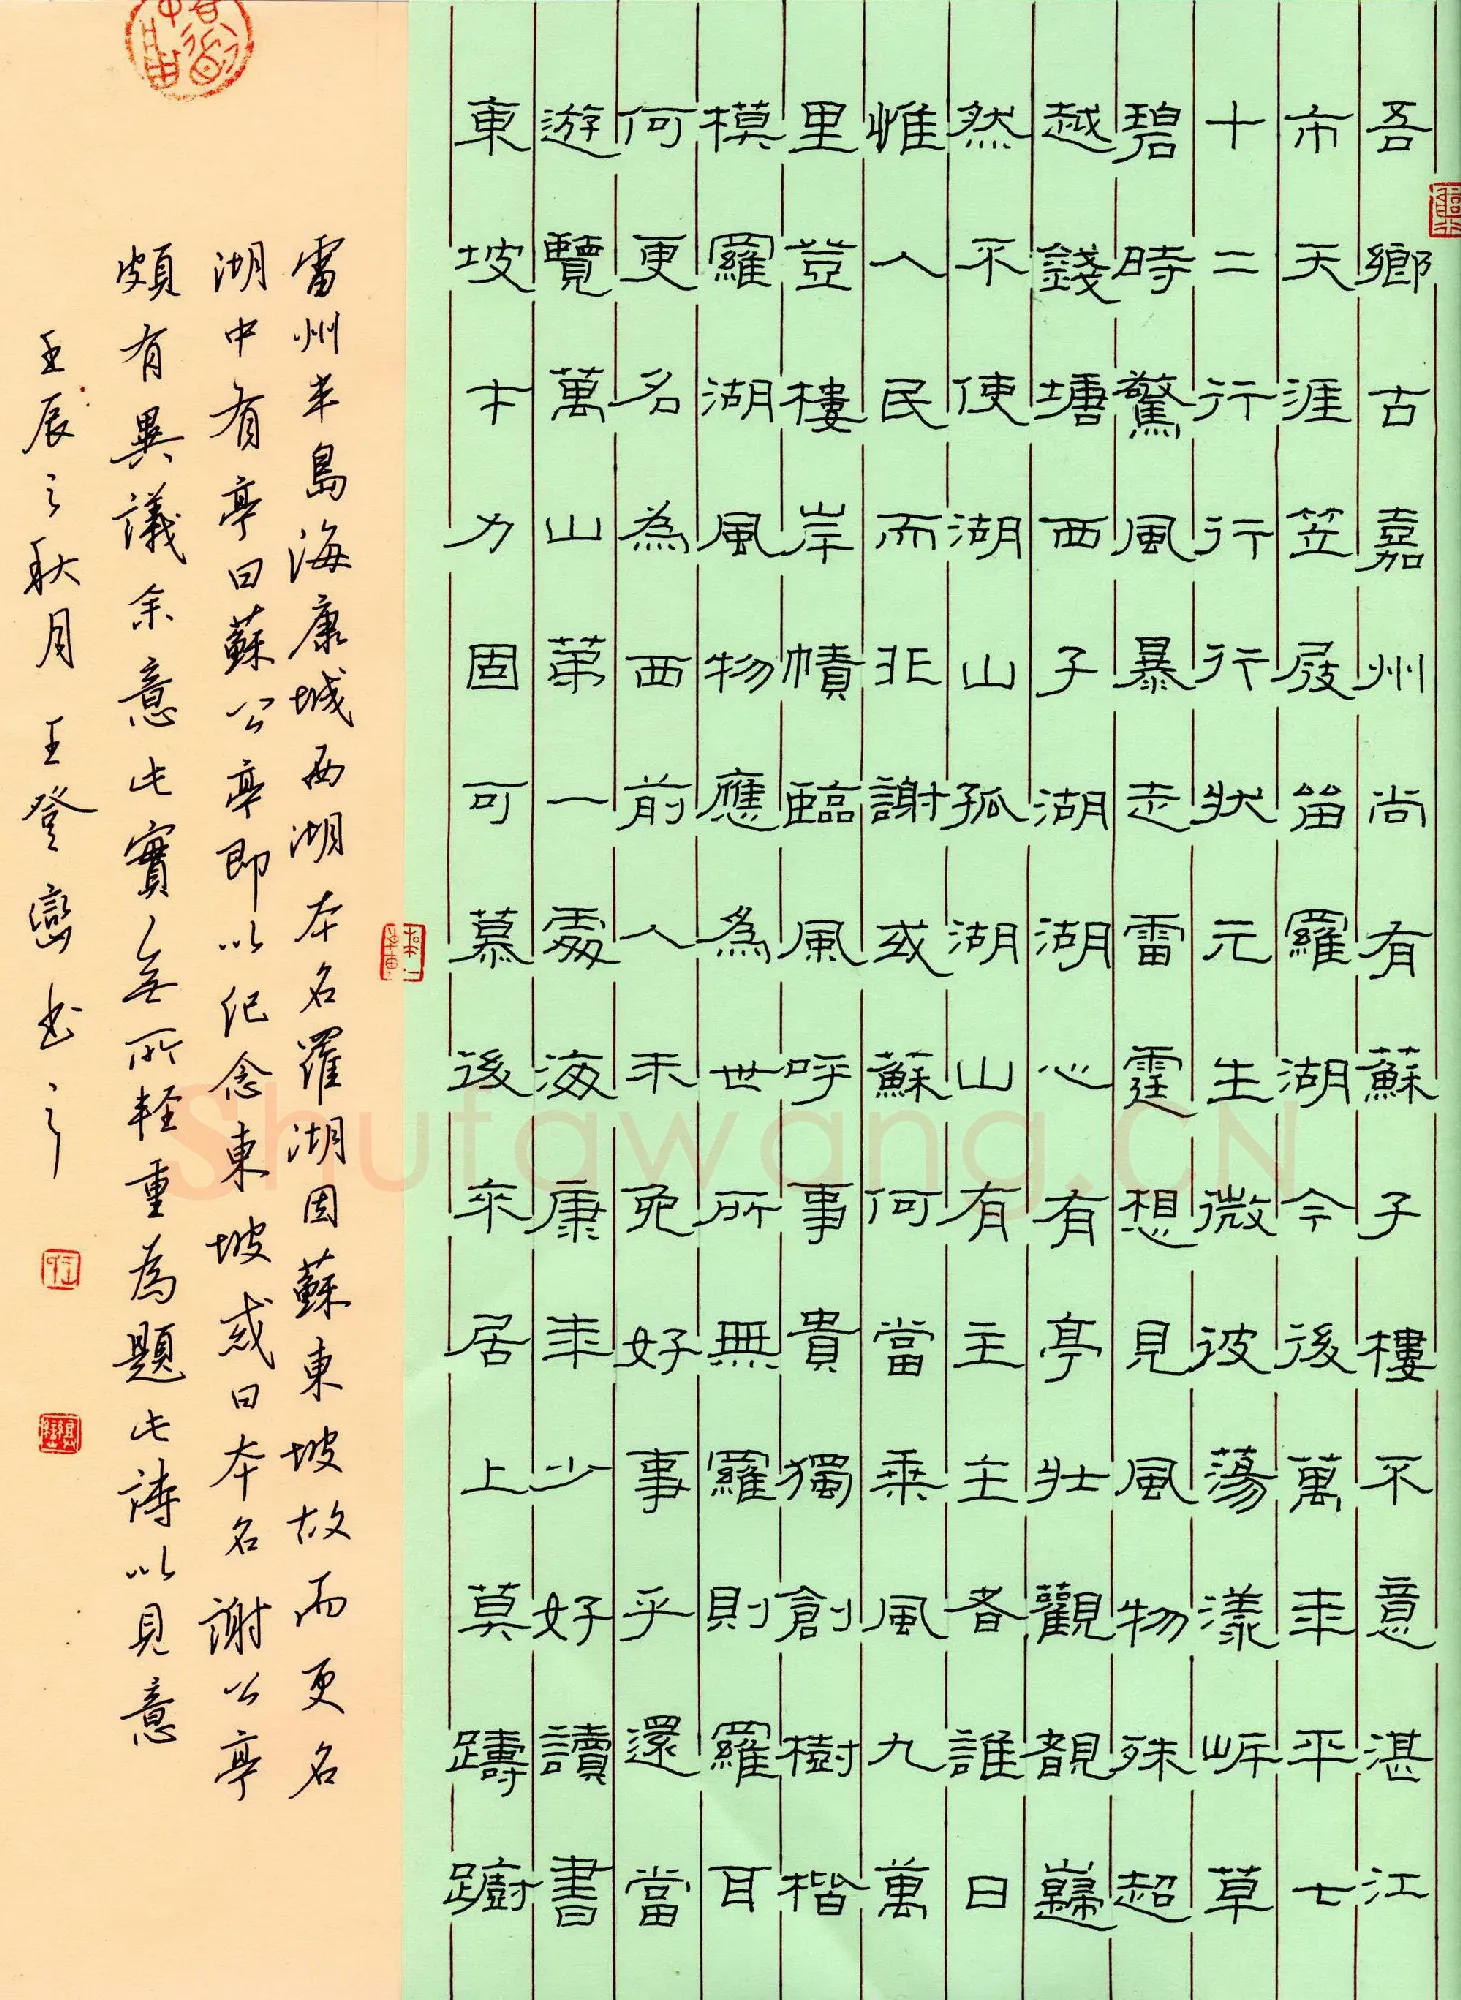 吾鄉古嘉州尚有蘇子樓不意湛江
市天涯笠屐留羅湖今後萬年平七
十二行行行狀元生微波蕩漾岸草
碧時驚風暴走雷霆想見風物殊超
越錢塘西子湖湖心有亭壯觀靚巍
然不使湖山孤湖山有主主者誰曰
惟人民而非謝或蘇何當乘風九萬
里登樓岸幘臨風呼事貴獨創樹楷
模羅湖風物應為世所無羅則羅耳
何更名為西前人未免好事乎還當
遊覽萬山第一處海康年少好讀書
東坡才力固可慕後來居上莫躊躇
雷州半島海康城西湖本名羅湖因蘇東坡故而更名
湖中有亭曰蘇公亭即以紀念東坡或曰本名謝公亭
頗有異議余意此實無所輕重為題此詩以見意
壬辰之秋月王登巒書之
Shufawang.CN